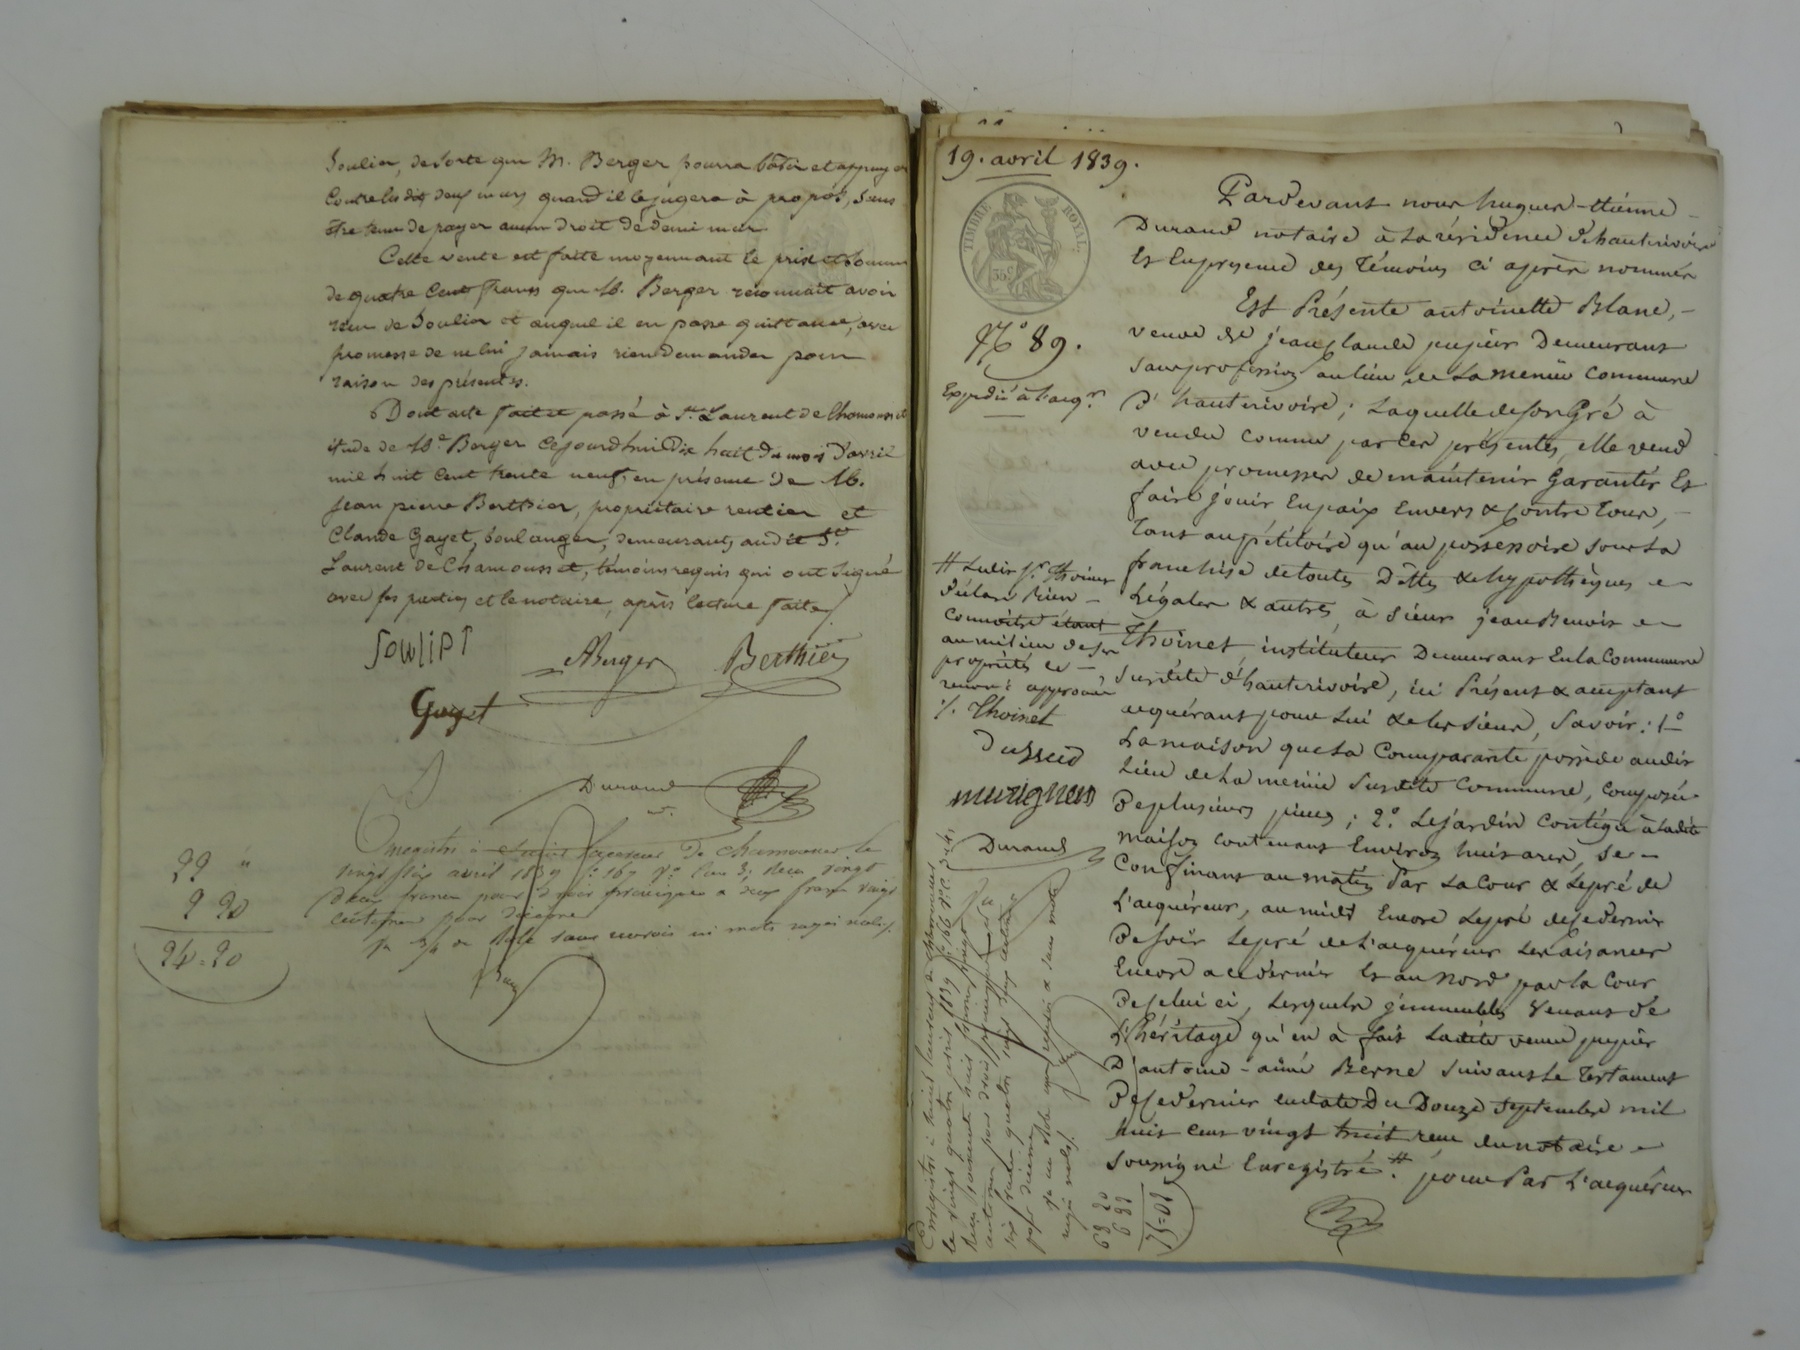 Soulier, de sorte que M. Berger pourra bâtir et appuyer
contre lesdits deux murs quand il le jugera à propos, sans
être tenu de payer aucun droit de demi mur.
Cette vente est faite moyennant le prix et somme
de quatre cent francs que M. Berger reconnait avoir
reçu de Soulier et auquel il en passe quittance, avec
promesse de ne lui jamais rien demander pour
raison des présentes.
Dont acte fait et passé à St. Laurent de Chamousset
étude de Me Berger cejourd'hui dix huit du mois d'avril
mil huit cent trente neuf, en présence de M.
Jean pierre Berthier, propriétaire rentier et
Claude Gayet, boulanger, demeurants audit St.
Laurent de Chamousset, témoins requis qui ont signé
avec les parties et le notaire, après lecture faite.
SOULIER
ABerger Berthier
Gayet
Durand
Enregistré à St Laurent de Chamousset le
vingt six avril 1839 fo 167 Vo Case 3, Reçu vingt
deux francs pour droits principaux & deux francs vingt
centimes pour décime
22 "
2 20
24=20
un rôle sans renvois ni mots rayés nuls.
19. avril 1839.
TIMBRE ROYAL
35c
No 89.
Expédié à l'acqr.
Pardevant nous hugues-étienne
Durand notaire à la résidence d'hauterivoire
Et En présence des témoins ci après nommés
Est Présente antoinette Blanc,
veuve de jean claude pupier Demeurant
sans profession au lieu de la menüe commune
d'hauterivoire; laquelle de son Gré à
vendu comme par ces présentes, elle vend
avec promesses de maintenir Garantir Et
faire jouir En paix Envers & contre tous,
tant au pétitoire qu'au possessoire sous la
franchise de toutes Dettes & hypothèques
Légales & autres, à sieur jean Benoit
Thoinet instituteur Demeurant En la Commune
susdite d'hauterivoire, ici Présent & acceptant
acquérant pour Lui & les siens, Savoir: 1o
La maison que la Comparante possède audit
Lieu de la menüe susdite Commune, composée
De plusieurs pièces; 2o. Le jardin contigu à ladite
maison contenant Environ huit ares, se
Confinant au matin Par La Cour & Le pré de
L'acquéreur, au midi Encore Le pré de ce dernier
De soir Le pré de l'acquéreur Les aisances
Encore a ce dernier Et au Nord par la Cour
De celui ci, Lesquels immeubles Venant de
L'héritage qu'en à fait Ladite veuve pupier
D'antoine-aimé Berne Suivant Le Testament
De ce dernier en date Du Douze septembre mil
huit cent vingt huit reçu du notaire
soussigné Enregistré.# pour Par L'acquéreur
# Ledit Sr. Thoinet
Déclare bien
Connoitre étant
au milieu de ses
propriétés
renvoi approuvé
./. Thoinet
Dussud
murigneu
Durand
Enregistré à Saint Laurent de Chamousset
le vingt quatre avril 1839 fo 166
Reçu soixante huit francs vingt
centimes pour droit principal &
six francs quatre vingt deux centimes
pour décime
un rôle un renvoi & sans mots
rayés nuls.
68 20
6 82
75=02